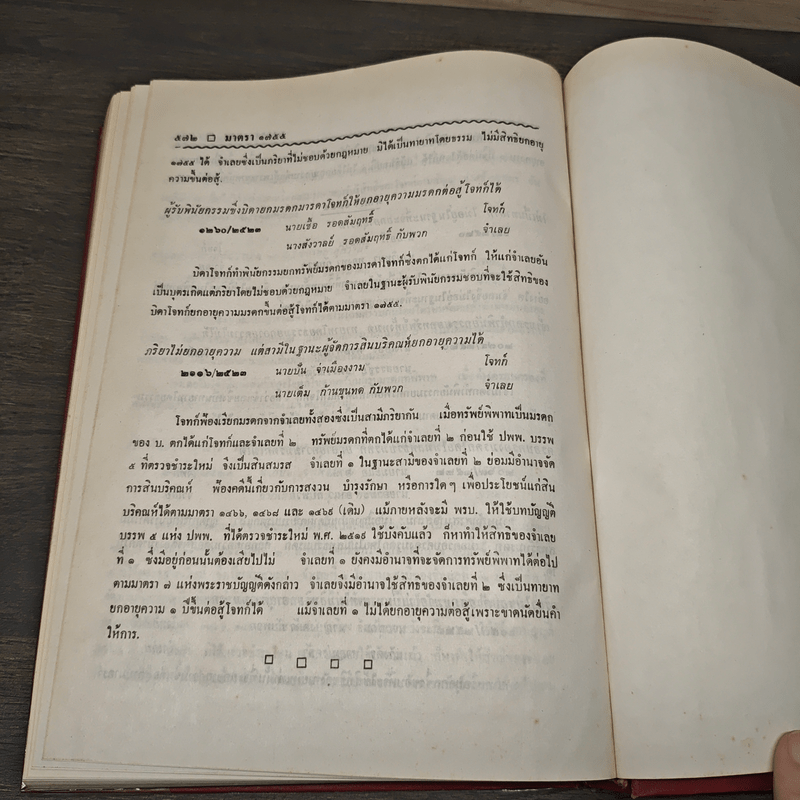 ๕๗๒ □ มาตรา ๑๗๕๕
๑๗๕๕ ได้ จำเลยซึ่งเป็นภริยาที่ไม่ชอบด้วยกฎหมาย มิได้เป็นทายาทโดยธรรม ไม่มีสิทธิยกอายุ
ความขึ้นต่อสู้.
ผู้รับพินัยกรรมซึ่งบิดายกมรดกมารดาโจทก์ให้ยกอายุความมรดกต่อสู้โจทก์ได้
๑๒๖๐/๒๕๒๓ นายเชื้อ รอดสัมฤทธิ์ โจทก์
นางสังวาลย์ รอดสัมฤทธิ์ กับพวก จำเลย
บิดาโจทก์ทำพินัยกรรมยกทรัพย์มรดกของมารดาโจทก์ซึ่งตกได้แก่โจทก์ ให้แก่จำเลยอัน
เป็นบุตรเกิดแต่ภริยาโดยไม่ชอบด้วยกฎหมาย จำเลยในฐานะผู้รับพินัยกรรมชอบที่จะใช้สิทธิของ
บิดาโจทก์ยกอายุความมรดกขึ้นต่อสู้โจทก์ได้ตามมาตรา ๑๗๕๕.
ภริยาไม่ยกอายุความ แต่สามีในฐานะผู้จัดการสินบริคณห์ยกอายุความได้
๒๑๑๖/๒๕๒๓ นายปั่น จ่าเมืองงาม โจทก์
นายเต็ม ก้านขุนทด กับพวก จำเลย
โจทก์ฟ้องเรียกมรดกจากจำเลยทั้งสองซึ่งเป็นสามีภริยากัน เมื่อทรัพย์พิพาทเป็นมรดก
ของ บ. ตกได้แก่โจทก์และจำเลยที่ ๒ ทรัพย์มรดกที่ตกได้แก่จำเลยที่ ๒ ก่อนใช้ ปพพ. บรรพ
๕ ที่ตรวจชำระใหม่ จึงเป็นสินสมรส จำเลยที่ ๑ ในฐานะสามีของจำเลยที่ ๒ ย่อมมีอำนาจจัด
การสินบริคณห์ ฟ้องคดีนี้เกี่ยวกับการสงวน บำรุงรักษา หรือการใด ๆ เพื่อประโยชน์แก่สิน
บริคณห์ได้ตามมาตรา ๑๔๖๖, ๑๔๖๘ และ ๑๔๖๙ (เดิม) แม้ภายหลังจะมี พรบ. ให้ใช้บทบัญญัติ
บรรพ ๕ แห่ง ปพพ. ที่ได้ตรวจชำระใหม่ พ.ศ. ๒๕๑๙ ใช้บังคับแล้ว ก็หาทำให้สิทธิของจำเลย
ที่ ๑ ซึ่งมีอยู่ก่อนนั้นต้องเสียไปไม่ จำเลยที่ ๑ ยังคงมีอำนาจที่จะจัดการทรัพย์พิพาทได้ต่อไป
ตามมาตรา ๗ แห่งพระราชบัญญัติดังกล่าว จำเลยจึงมีอำนาจใช้สิทธิของจำเลยที่ ๒ ซึ่งเป็นทายาท
ยกอายุความ ๑ ปีขึ้นต่อสู้โจทก์ได้ แม้จำเลยที่ ๑ ไม่ได้ยกอายุความต่อสู้เพราะขาดนัดยื่นคำ
ให้การ.